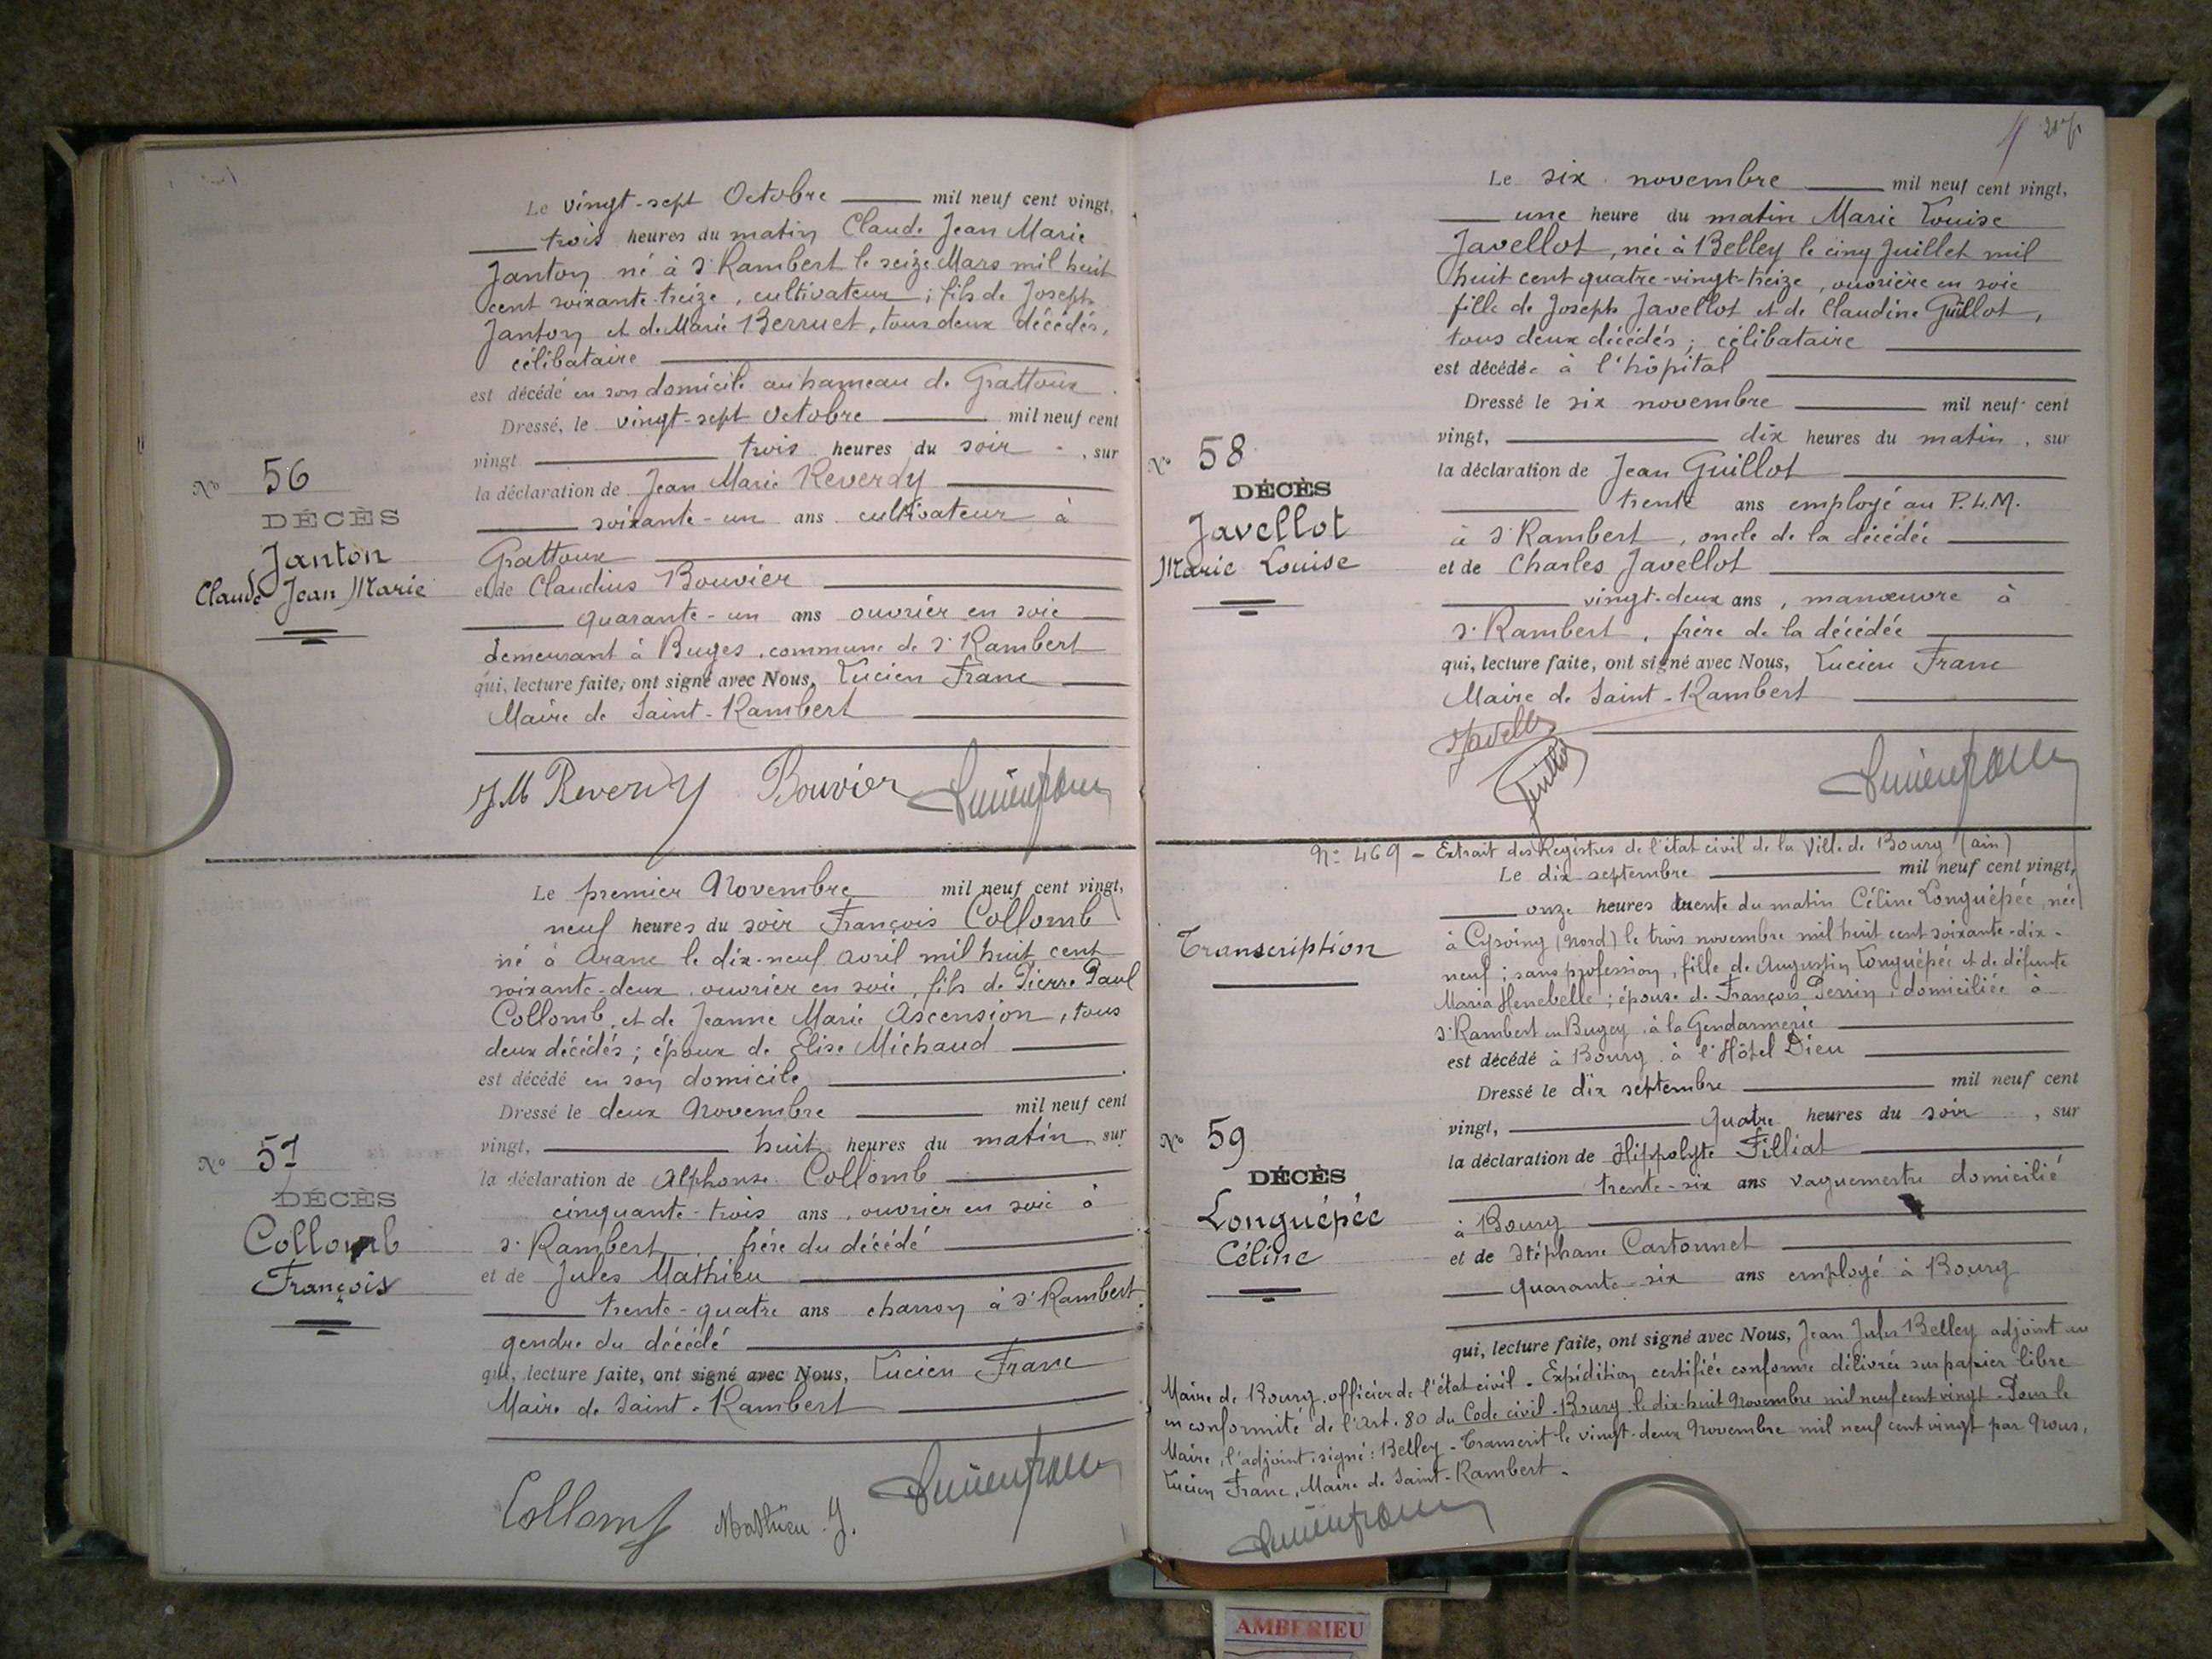 Le vingt-sept Octobre mil neuf cent vingt,
trois heures du matin Claude Jean Marie
Janton né à St Rambert le seize Mars mil huit
cent soixante-treize, cultivateur ; fils de Joseph
Janton et de Marie Berruet, tous deux décédés,
célibataire
est décédé en son domicile au hameau de Grattoux.
Dressé, le vingt-sept Octobre mil neuf cent
vingt trois heures du soir, sur
la déclaration de Jean Marie Reverdy
soixante-un ans cultivateur à
Grattoux
et de Claudius Bouvier
quarante-un ans ouvrier en soie
demeurant à Buges, commune de St Rambert
qui, lecture faite, ont signé avec Nous, Lucien Franc
Maire de Saint-Rambert
No 56
DÉCÈS
Janton
Claude Jean Marie
J M Reverdy Bouvier Lucien Franc
Le premier Novembre mil neuf cent vingt,
neuf heures du soir François Collomb
né à Aranc le dix-neuf avril mil huit cent
soixante-deux, ouvrier en soie, fils de Pierre Paul
Collomb, et de Jeanne Marie Ascension, tous
deux décédés ; époux de Elise Michaud
est décédé en son domicile
Dressé le deux Novembre mil neuf cent
vingt, huit heures du matin, sur
la déclaration de Alphonse Collomb
cinquante-trois ans, ouvrier en soie à
St Rambert, frère du décédé
et de Jules Mathieu
trente-quatre ans charron à St Rambert
gendre du décédé
qui, lecture faite, ont signé avec Nous, Lucien Franc
Maire de Saint-Rambert
No 57
DÉCÈS
Collomb
François
Collomb Mathieu J. Lucien Franc
Le six novembre mil neuf cent vingt,
une heure du matin Marie Louise
Javellot, née à Belley le cinq Juillet mil
huit cent quatre-vingt-treize, ouvrière en soie
fille de Joseph Javellot et de Claudine Guillot,
tous deux décédés ; célibataire
est décédée à l'hôpital
Dressé le six novembre mil neuf cent
vingt, dix heures du matin, sur
la déclaration de Jean Guillot
trente ans employé au P.L.M.
à St Rambert, oncle de la décédée
et de Charles Javellot
vingt-deux ans, manœuvre à
St Rambert, frère de la décédée
qui, lecture faite, ont signé avec Nous, Lucien Franc
Maire de Saint-Rambert
No 58
DÉCÈS
Javellot
Marie Louise
Guillot Lucien Franc
No 469 - Extrait des Registres de l'état civil de la Ville de Bourg (ain)
Le dix septembre mil neuf cent vingt,
onze heures trente du matin Céline Longuépée, née
à Cysoing (Nord) le trois novembre mil huit cent soixante-dix-
neuf ; sans profession, fille de Augustin Longuépée et de défunte
Maria Henebelle ; épouse de François Perrin, domiciliée à
St Rambert en Bugey à la Gendarmerie
est décédé à Bourg à l'Hôtel Dieu
Dressé le dix septembre mil neuf cent
vingt, quatre heures du soir, sur
la déclaration de Hippolyte Filliat
trente-six ans vaguemestre domicilié
à Bourg
et de Stéphane Cartonnet
quarante-six ans employé à Bourg
qui, lecture faite, ont signé avec Nous, Jean Jules Belley adjoint au
Maire de Bourg, officier de l'état civil. Expédition certifiée conforme délivrée sur papier libre
en conformité de l'Art. 80 du Code civil. Bourg le dix-huit Novembre mil neuf cent vingt - Pour le
Maire, l'adjoint : signé : Belley - Transcrit le vingt-deux Novembre mil neuf cent vingt par Nous,
Lucien Franc, Maire de Saint-Rambert.
Transcription
No 59
DÉCÈS
Longuépée
Céline
Lucien Franc
AMBERIEU